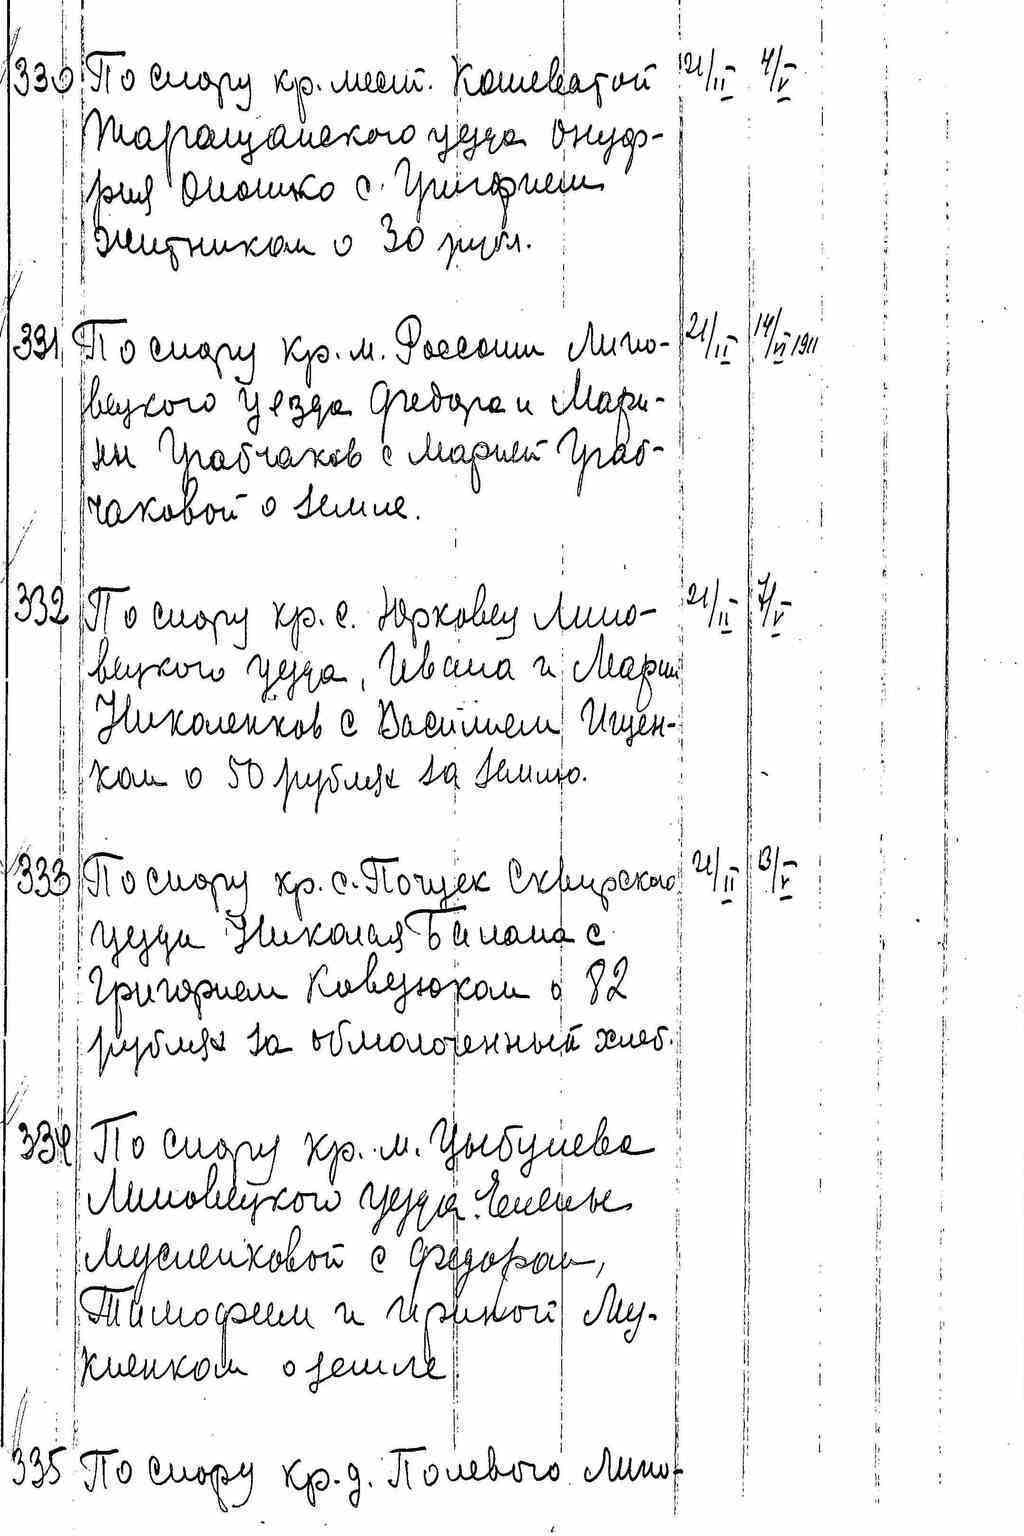 330 По спору кр. мест. Кошеватой 21/II 4/V
Таращанского уезда Онуф-
рия Оношко с Григорием
Житником о 30 рубл.
331 По спору кр. м. Россоши Липо- 21/II 14/VI 1911
вецкого уезда Федора и Мари-
ны Грабчаков с Марией Граб-
чаковой о земле.
332 По спору кр. с. Юрковец Липо- 21/II 7/V
вецкого уезда, Ивана и Марии
Николенков с Василием Ищен-
ком о 50 рублях за землю.
333 По спору кр. с. Почуек Сквирского 21/II 13/V
уезда Николая Билана с
Григорием Кавезюком о 82
рублях за обмолоченный хлеб.
334 По спору кр. м. Цыбулева
Липовецкого уезда Елены
с Федором,
Тимофеем и Ириной Му-
сиенком о земле
335 По спору кр. д. Полевого Липо-